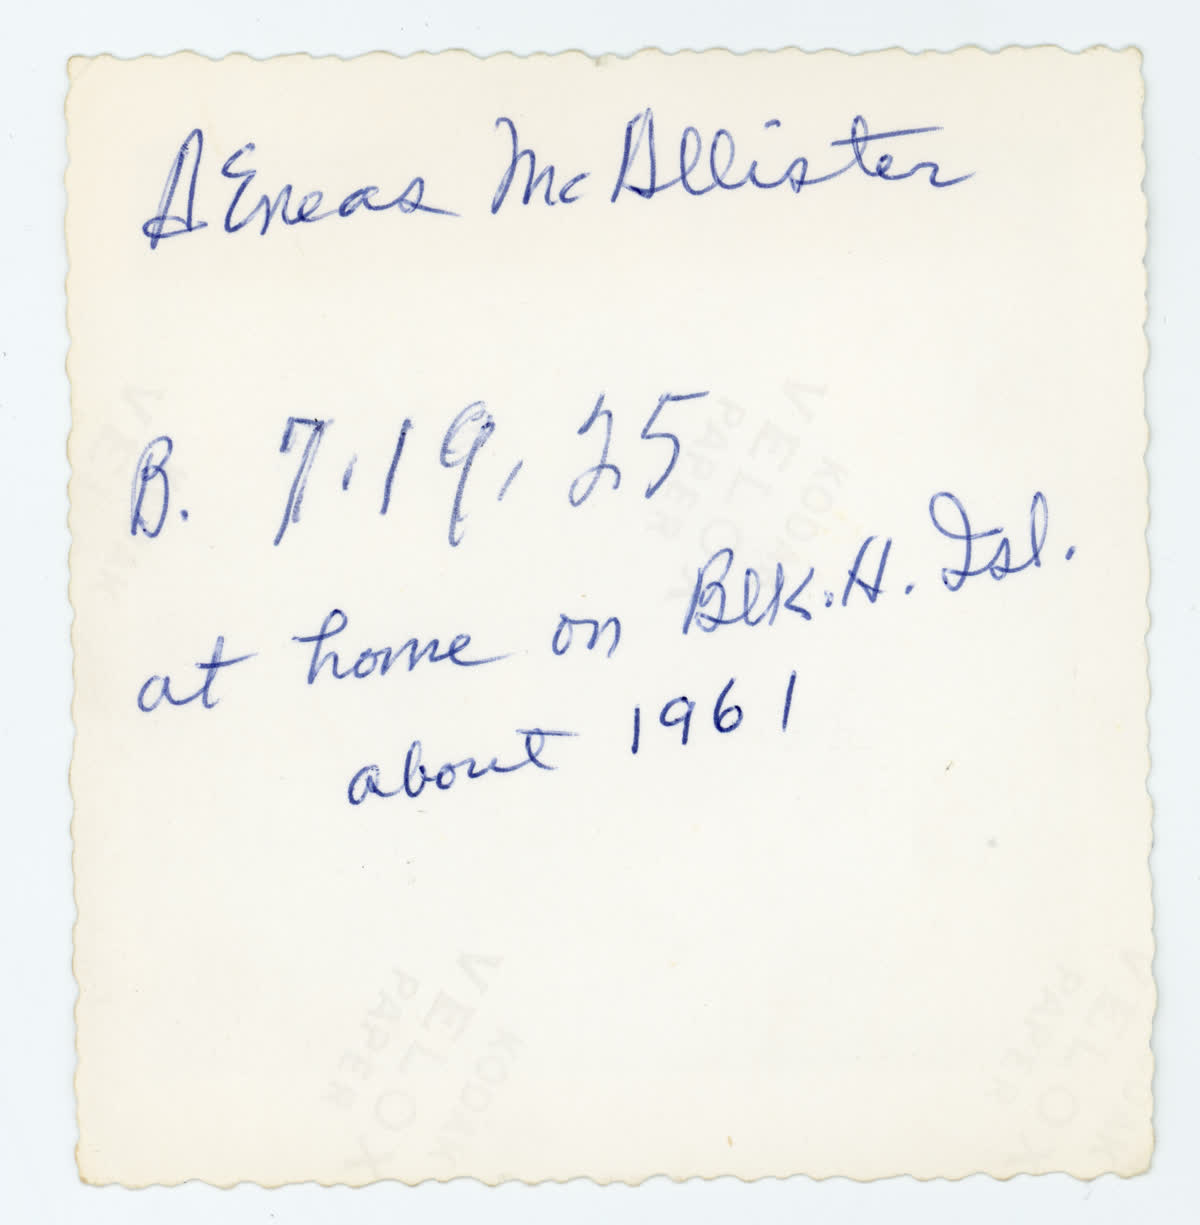 AEneas McAllister
B. 7.19, 25
at home on Blk. H. Isl.
about 1961
VELOX
KODAK
VELOX
PAPER
KODAK
VELOX
PAPER
KODAK
VELOX
PAPER